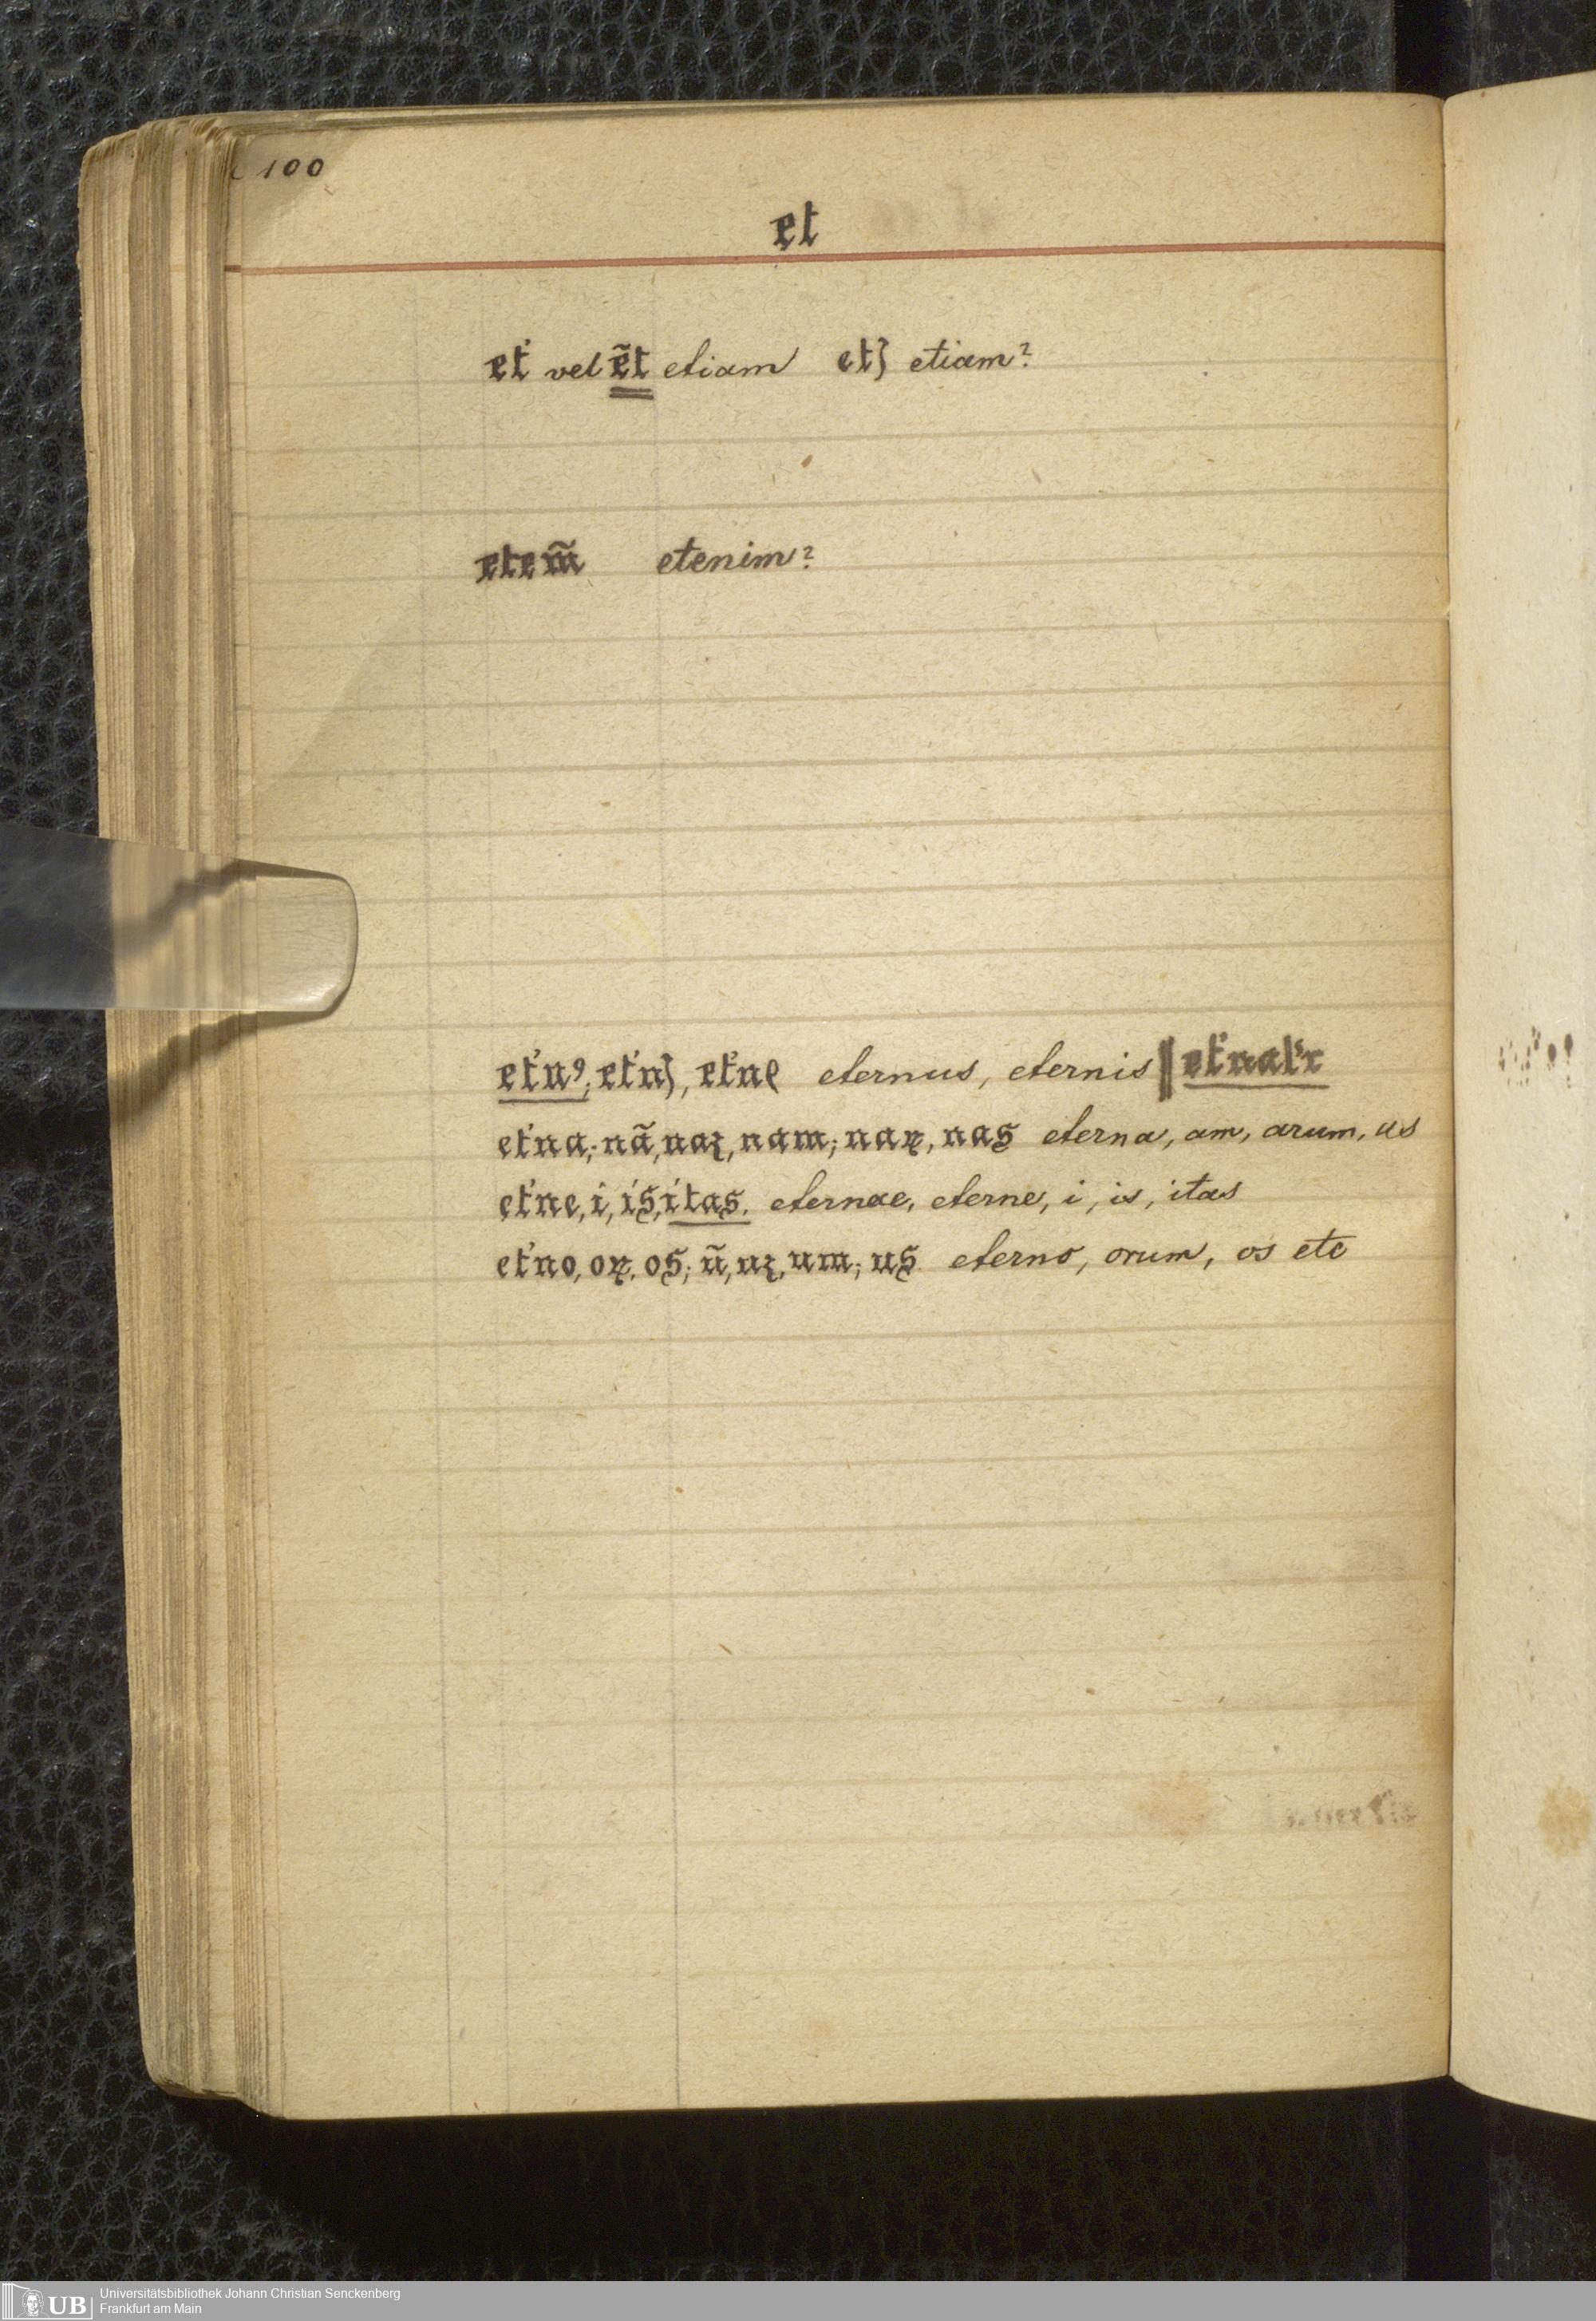 100
et
et᾿ vel ẽt etiam etꝭ etiam?
etem̃ etenim?
et᾿nꝰ, et᾿nꝭ, et᾿ne eternus, eternis ‖ et᾿nal᾿r
et᾿na; nã, naꝫ, nam; naꝝ, nas eterna, am, arum, as
et᾿ne, i, is, itas. eternae, eterne, i, is, itas
et᾿no, oꝝ, os; ũ, uꝫ, um; us eterno, orum, os etc
UB Universitätsbibliothek Johann Christian Senckenberg
Frankfurt am Main